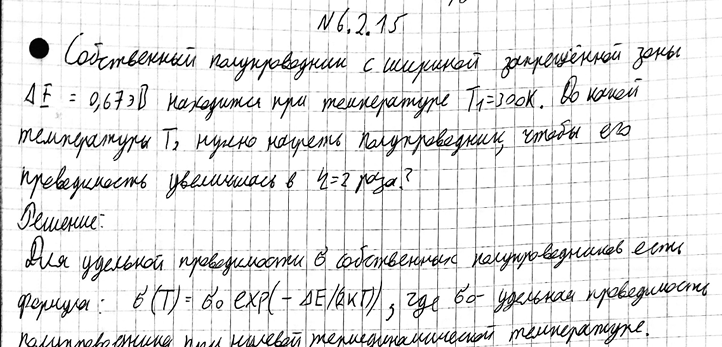 N 6.2.15
Собственный полупроводник с шириной запрещённой зоны
ΔE = 0,67 эВ находится при температуре T₁=300К. До какой
температуры T₂ нужно нагреть полупроводник, чтобы его
проводимость увеличилась в η=2 раза?
Решение:
Для удельной проводимости б собственных полупроводников есть
формула: б(T) = б₀ exp(- ΔE/(2кT)), где б₀- удельная проводимость
полупроводника при нулевой термодинамической температуре.